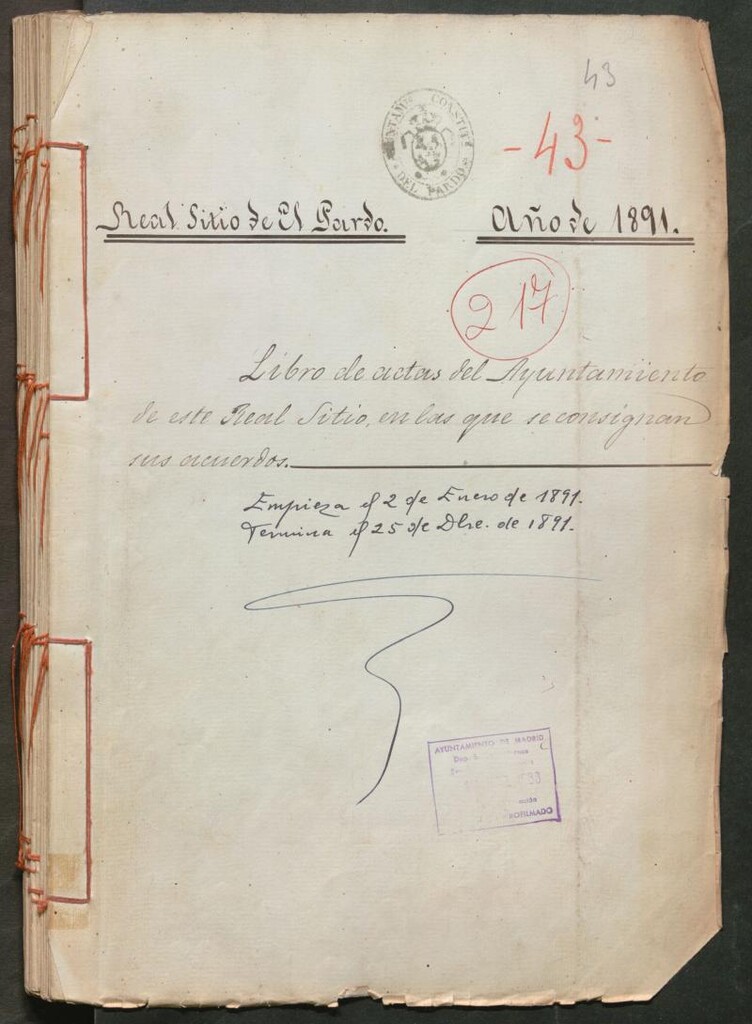 43
AYUNTAMº CONSTITL
DEL PARDO
-43-
Real Sitio de El Pardo. Año de 1891.
217
Libro de actas del Ayuntamiento
de este Real Sitio, en las que se consignan
sus acuerdos.
Empieza el 2 de Enero de 1891.
Termina el 25 de Dbre. de 1891.
AYUNTAMIENTO DE MADRID